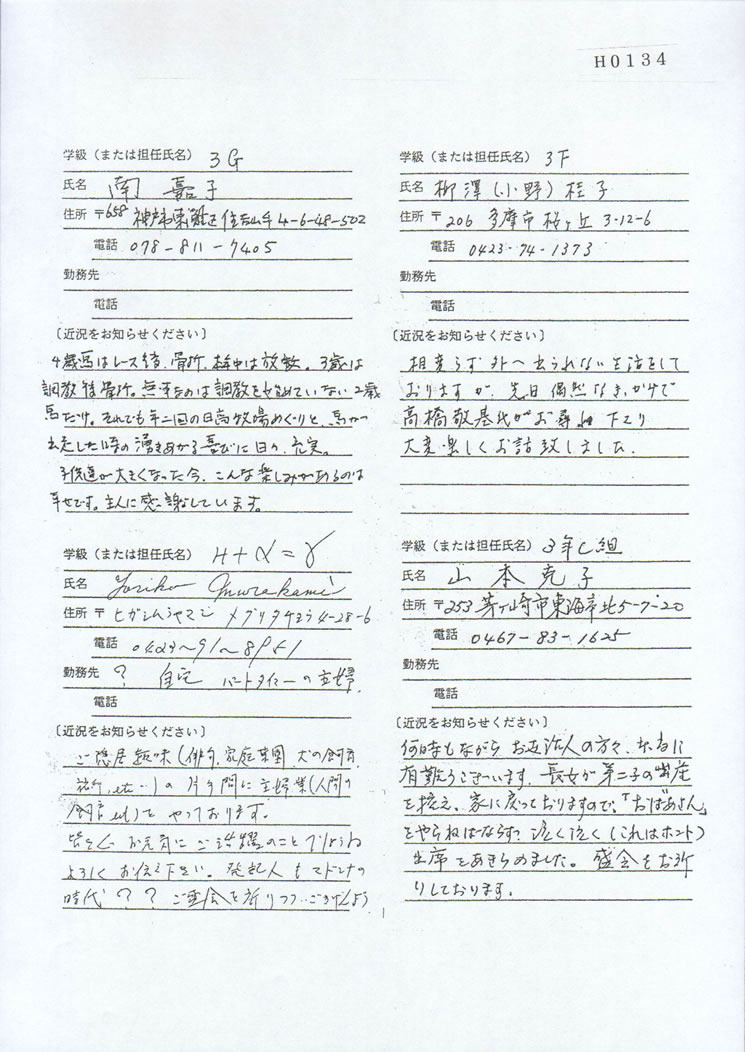 H0134
学級（または担任氏名） 3G
氏名 南 嘉子
住所 〒658 神戸東灘区住吉山手 4-6-48-502
電話 078-811-7405
勤務先
電話
〔近況をお知らせください〕
4歳馬はレース後、骨折。栓中は放散。3歳は
調教後骨折。無事なのは調教を始めていない2歳
馬だけ。それでも年二回の日高牧場めぐりと、馬が
出走した時の湧きあがる喜びに日々、充実。
子供達が大きくなった今、こんな楽しみがあるのは
幸せです。主人に感謝しています。
学級（または担任氏名） H+α=γ
氏名 Yoriko Murakami
住所 〒 ヒガシムラヤマシ メグリタチョウ 4-28-6
電話 0423~91~
勤務先 ? 自宅 パートタイマーの主婦
電話
〔近況をお知らせください〕
ご隠居趣味（俳句、家庭菜園、犬の飼育、
旅行、etc…）の片手間に主婦業（人間の
飼育 etc）を やっております。
皆さん お元気に ご活躍のことでしょうね
よろしく お伝え下さい。発起人もマドンナの
時代？？ ご盛会を祈りつつ…ごきげんよう
学級（または担任氏名） 3F
氏名 柳澤（小野）桂子
住所 〒206 多摩市桜ヶ丘 3-12-6
電話 0423-74-1373
勤務先
電話
〔近況をお知らせください〕
相変らず外へ出られない生活をして
おりますが、先日偶然なきっかけで
高橋敬基氏がお尋ね下さり
大変楽しくお話致しました。
学級（または担任氏名） 3年C組
氏名 山本克子
住所 〒253 茅ヶ崎市東海岸北5-7-20
電話 0467-83-1625
勤務先
電話
〔近況をお知らせください〕
何時もながら お世話人の方々、本当に
有難うございます。長女が第二子の出産
を控え、家に戻っておりますので、「おばあさん」
をやらねばならず 泣く泣く（これはホント）
出席をあきらめました。盛会をお祈
りしております。